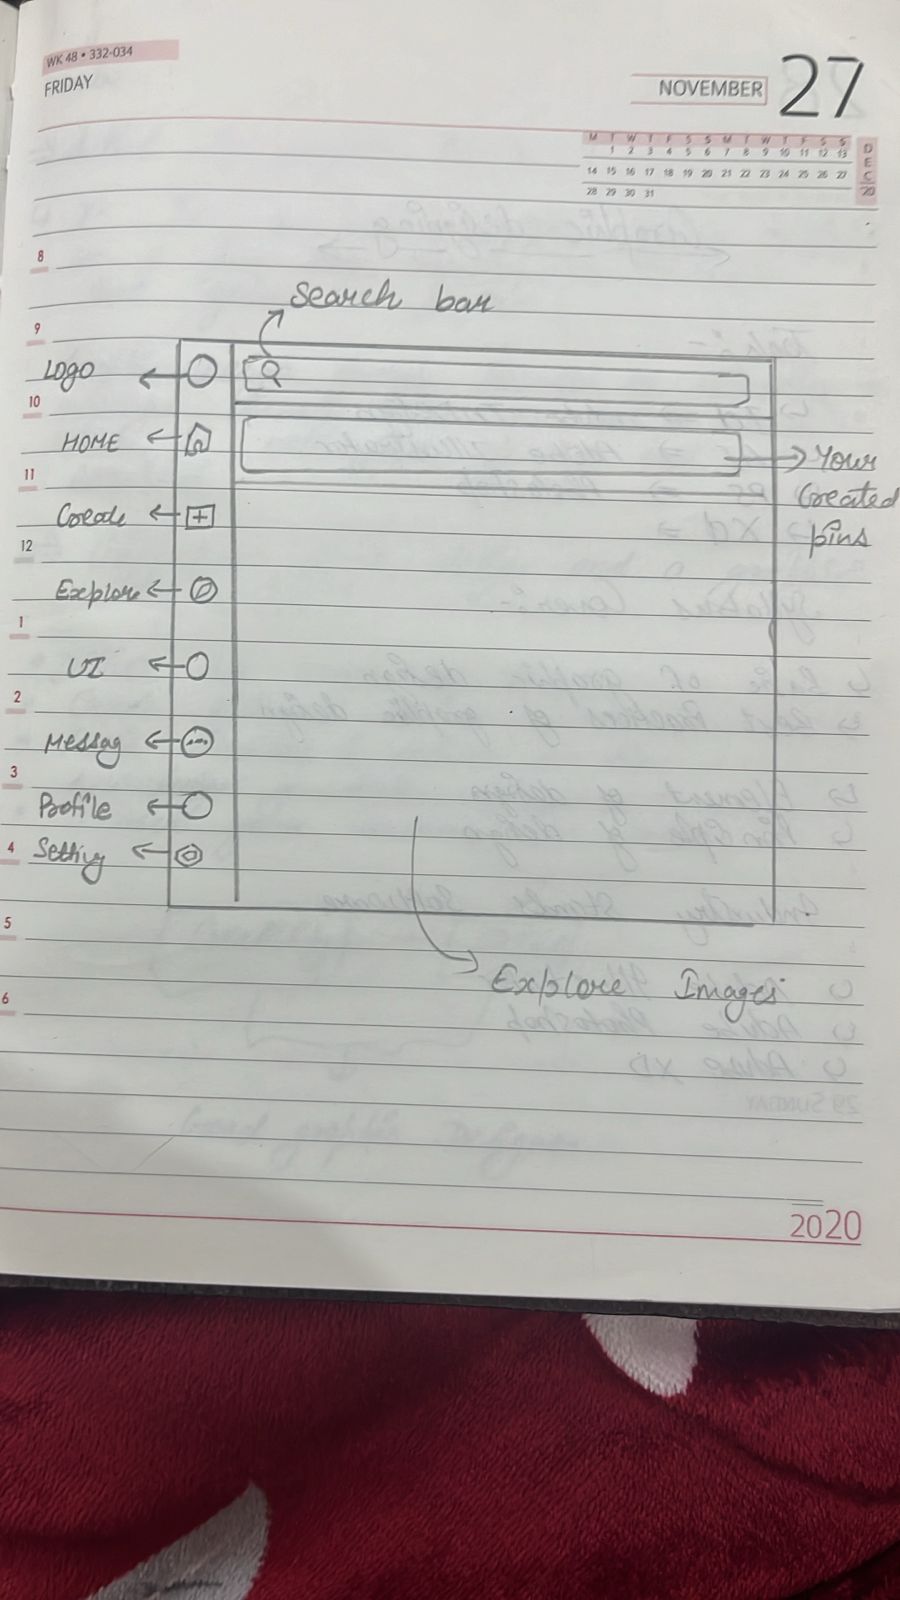 WK 48 • 332-034
FRIDAY
NOVEMBER 27
M T W T F S S M T W T F S S
1 2 3 4 5 6 7 8 9 10 11 12 13
14 15 16 17 18 19 20 21 22 23 24 25 26 27
28 29 30 31
DEC 20
8
Search bar
9
Logo
10
HOME
11
Your
Created
pins
Create
12
Explore
1
UI
2
Messag
3
Profile
4
Setting
5
Explore Images
6
2020